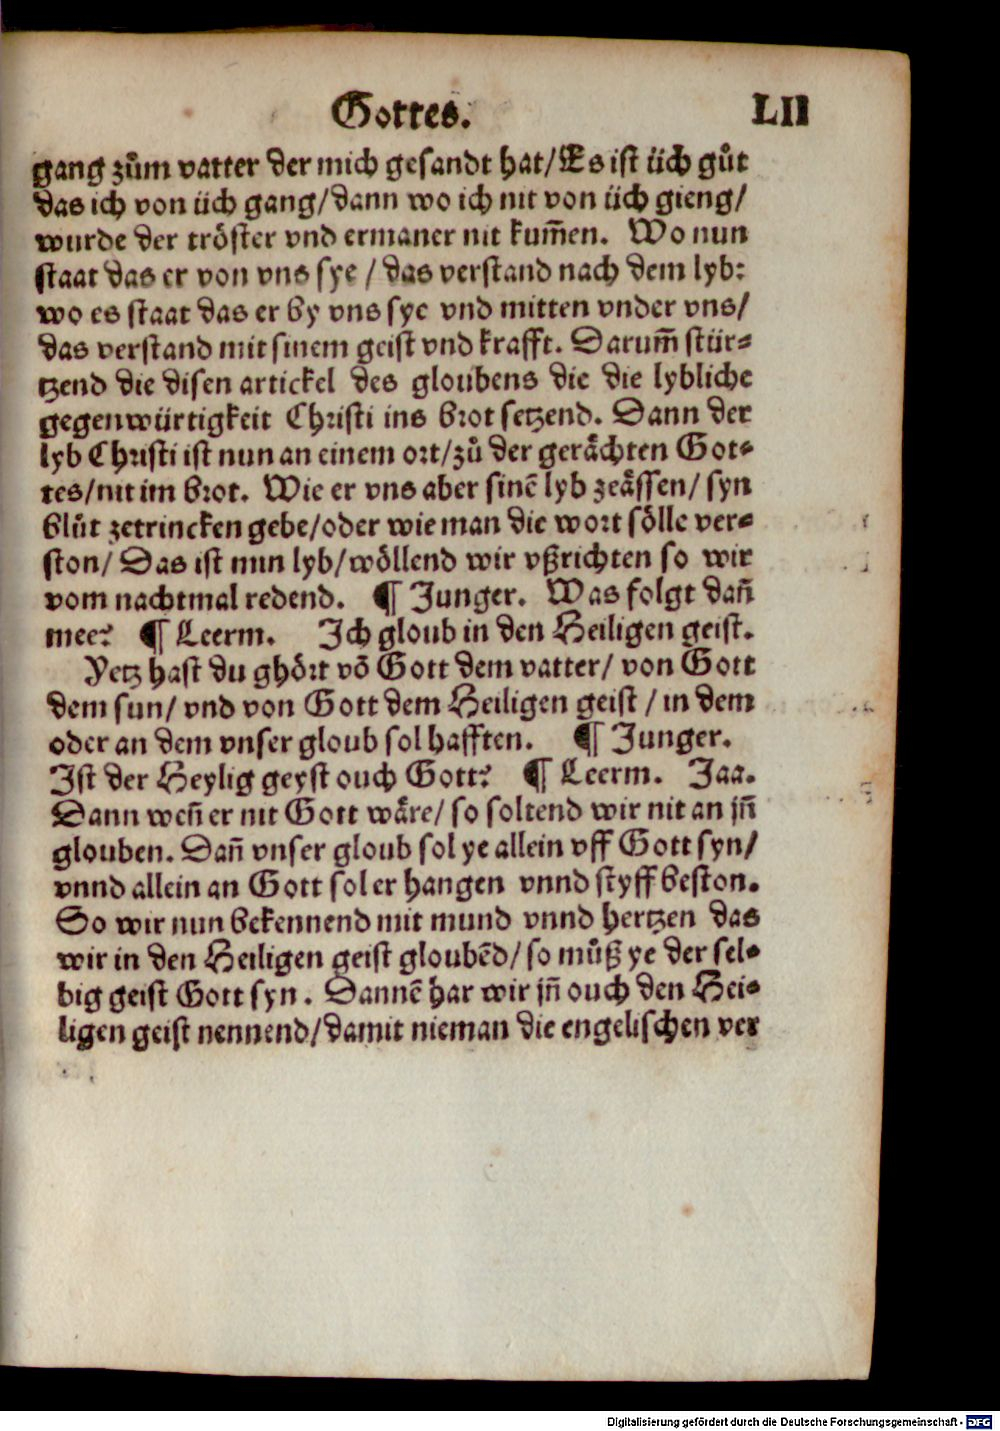 Gottes. LII
gang zuͦm vatter der mich gesandt hat/Es ist üch guͦt
das ich von üch gang/dann wo ich nit von üch gieng/
wurde der tröster vnd ermaner nit kum̃en. Wo nun
staat das er von vns sye / das verstand nach dem lyb:
wo es staat das er by vns sye vnd mitten vnder vns/
das verstand mit sinem geist vnd krafft. Darum̃ stür⸗
tzend die disen artickel des gloubens die die lybliche
gegenwürtigkeit Christi ins brot setzend. Dann der
lyb Christi ist nun an einem ort/zuͦ der gerächten Got⸗
tes/nit im brot. Wie er vns aber sinē lyb zeässen/ syn
bluͦt zetrincken gebe/oder wie man die wort sölle ver⸗
ston/ Das ist min lyb/wöllend wir vßrichten so wir
vom nachtmal redend. ¶ Junger. Was folgt dañ
mee? ¶ Leerm. Ich gloub in den Heiligen geist.
Yetz hast du ghört vō Gott dem vatter/ von Gott
dem sun/ vnd von Gott dem Heiligen geist / in dem
oder an dem vnser gloub sol hafften. ¶ Junger.
Ist der Heylig geyst ouch Gott? ¶ Leerm. Jaa.
Dann weñ er nit Gott wäre/ so soltend wir nit an jñ
glouben. Dañ vnser gloub sol ye allein vff Gott syn/
vnnd allein an Gott sol er hangen vnnd styff beston.
So wir nun bekennend mit mund vnnd hertzen das
wir in den Heiligen geist gloubēd/ so muͦß ye der sel⸗
big geist Gott syn. Dannē har wir jñ ouch den Hei⸗
ligen geist nennend/damit nieman die engelischen ver
Digitalisierung gefördert durch die Deutsche Forschungsgemeinschaft - DFG